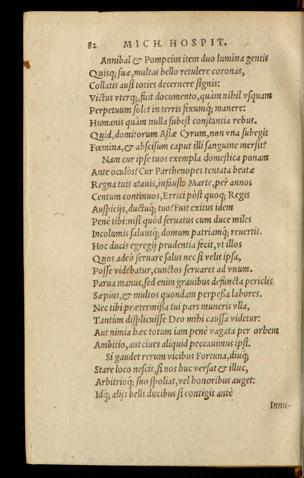 82 MICH. HOSPIT.
Annibal & Pompeius item duo lumina gentis
Quisq; suæ, multas bello retulere coronas,
Collatis ausi toties decernere signis:
Victus uterq; fuit documento, quàm nihil vsquam
Perpetuum solet in terris fixumq; manere:
Humanis quàm nulla subest constantia rebus.
Quid, domitorum Asiæ Cyrum, non vna subegit
Fœmina, & abscisum caput illi sanguine mersit?
Nam cur ipse tuos exempla domestica ponam
Ante oculos? Cur Parthenopes tentata beatæ
Regna tuis atauis, infausto Marte, per annos
Centum continuos, Errici pòst quoq; Regis
Auspicijs, ductuq; tuo? Fuit exitus idem
Penè tibi: nisi quòd seruatus cum duce miles
Incolumis saluusq; domum patriamq; reuertit.
Hoc ducis egregij prudentia fecit, vt illos
Quos adeò seruare salus nec si velit ipsa,
Posse videbatur, cunctos seruaret ad vnum.
Parua manus, sed enim grauibus defuncta periclis
Sæpius, & multos quondam perpessa labores.
Nec tibi prætermissa tui pars muneris vlla,
Tantùm displicuisse Deo mihi caussa videtur:
Aut nimia hæc totum iam penè vagata per orbem
Ambitio, aut ciues aliquid peccauimus ipsi.
Si gaudet rerum vicibus Fortuna, diuq;
Stare loco nescit, si nos huc versat & illuc,
Arbitrioq; suo spoliat, vel honoribus auget:
Idq; alijs belli ducibus si contigit antè
Innu-